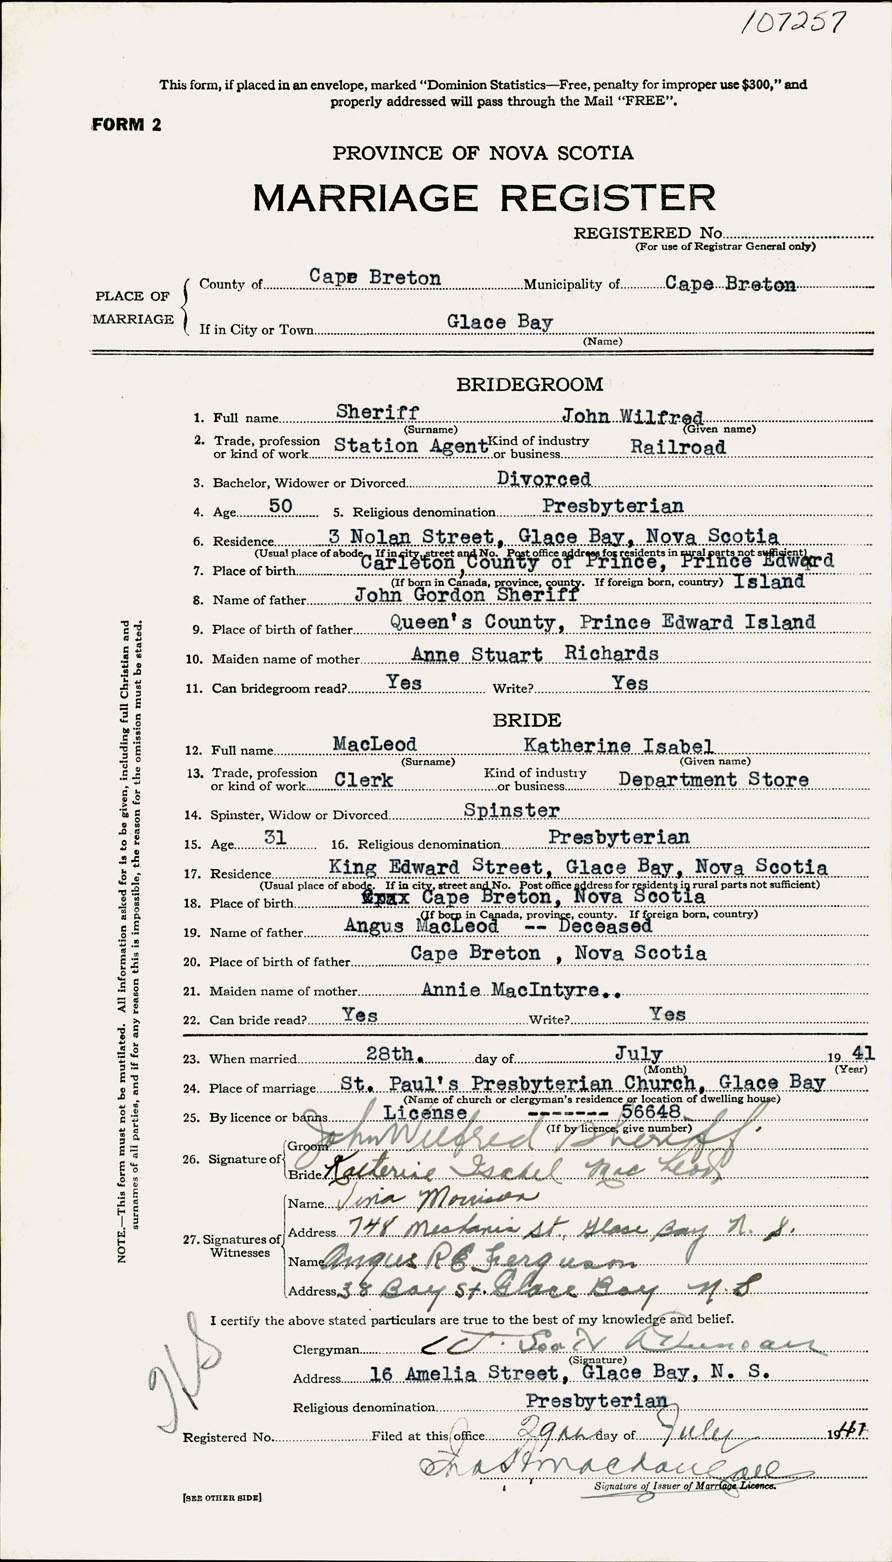 107257
This form, if placed in an envelope, marked “Dominion Statistics—Free, penalty for improper use $300,” and
properly addressed will pass through the Mail “FREE”.
FORM 2
PROVINCE OF NOVA SCOTIA
MARRIAGE REGISTER
REGISTERED No.
(For use of Registrar General only)
PLACE OF MARRIAGE
County of Cape Breton Municipality of Cape Breton
If in City or Town Glace Bay
(Name)
BRIDEGROOM
1. Full name Sheriff John Wilfred
(Surname) (Given name)
2. Trade, profession or kind of work Station Agent Kind of industry or business Railroad
3. Bachelor, Widower or Divorced Divorced
4. Age 50 5. Religious denomination Presbyterian
6. Residence 3 Nolan Street, Glace Bay, Nova Scotia
(Usual place of abode. If in city, street and No. Post office address for residents in rural parts not sufficient)
7. Place of birth Carleton, County of Prince, Prince Edward
(If born in Canada, province, county. If foreign born, country) Island
8. Name of father John Gordon Sheriff
9. Place of birth of father Queen's County, Prince Edward Island
10. Maiden name of mother Anne Stuart Richards
11. Can bridegroom read? Yes Write? Yes
BRIDE
12. Full name MacLeod Katherine Isabel
(Surname) (Given name)
13. Trade, profession or kind of work Clerk Kind of industry or business Department Store
14. Spinster, Widow or Divorced Spinster
15. Age 31 16. Religious denomination Presbyterian
17. Residence King Edward Street, Glace Bay, Nova Scotia
(Usual place of abode. If in city, street and No. Post office address for residents in rural parts not sufficient)
18. Place of birth Cape Breton, Nova Scotia
(If born in Canada, province, county. If foreign born, country)
19. Name of father Angus MacLeod -- Deceased
20. Place of birth of father Cape Breton , Nova Scotia
21. Maiden name of mother Annie MacIntyre..
22. Can bride read? Yes Write? Yes
23. When married 28th. day of July 19 41
(Month) (Year)
24. Place of marriage St. Paul's Presbyterian Church, Glace Bay
(Name of church or clergyman's residence or location of dwelling house)
25. By licence or banns License ------- 56648
(If by licence, give number)
26. Signature of
Groom John Wilfred Sheriff.
Bride Katherine Isabel MacLeod
27. Signatures of Witnesses
Name Morrison
Address 748 St., Glace Bay N. S.
Name Angus Ferguson
Address 38 Bay St. Glace Bay N.S
I certify the above stated particulars are true to the best of my knowledge and belief.
Clergyman
(Signature)
Address 16 Amelia Street, Glace Bay, N. S.
Religious denomination Presbyterian
Registered No. Filed at this office 29th day of July 1941
Signature of Issuer of Marriage Licence.
[SEE OTHER SIDE]
NOTE.—This form must not be mutilated. All information asked for is to be given, including full Christian and
surnames of all parties, and if for any reason this is impossible, the reason for the omission must be stated.